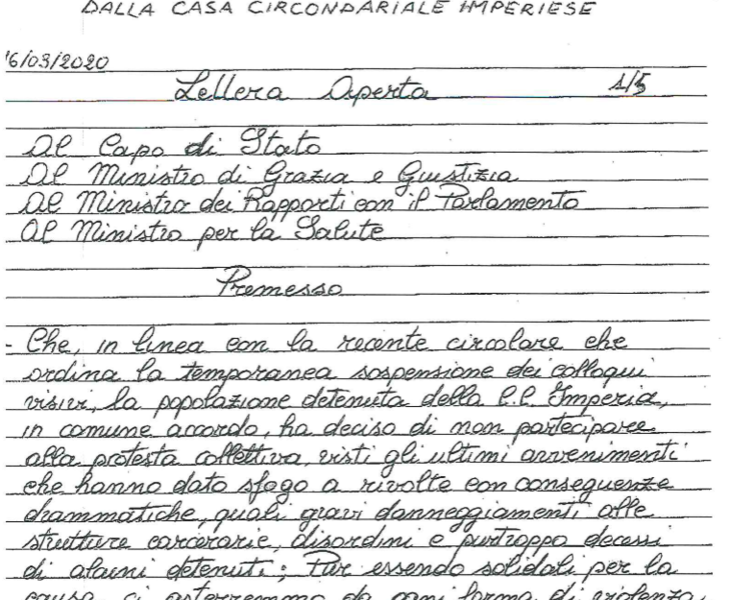 DALLA CASA CIRCONDARIALE IMPERIESE
16/03/2020
Lettera Aperta 1/5
Al Capo di Stato
Al Ministro di Grazia e Giustizia
Al Ministro dei Rapporti con il Parlamento
Al Ministro per la Salute
Premesso
- Che, in linea con la recente circolare che
ordina la temporanea sospensione dei colloqui
visivi, la popolazione detenuta della C.C. Imperia,
in comune accordo, ha deciso di non partecipare
alla protesta collettiva, visti gli ultimi avvenimenti
che hanno dato sfogo a rivolte con conseguenze
drammatiche, quali gravi danneggiamenti alle
strutture carcerarie, disordini e purtroppo decessi
di alcuni detenuti; Pur essendo solidali per la
causa, ci asterremmo da ogni forma di violenza,